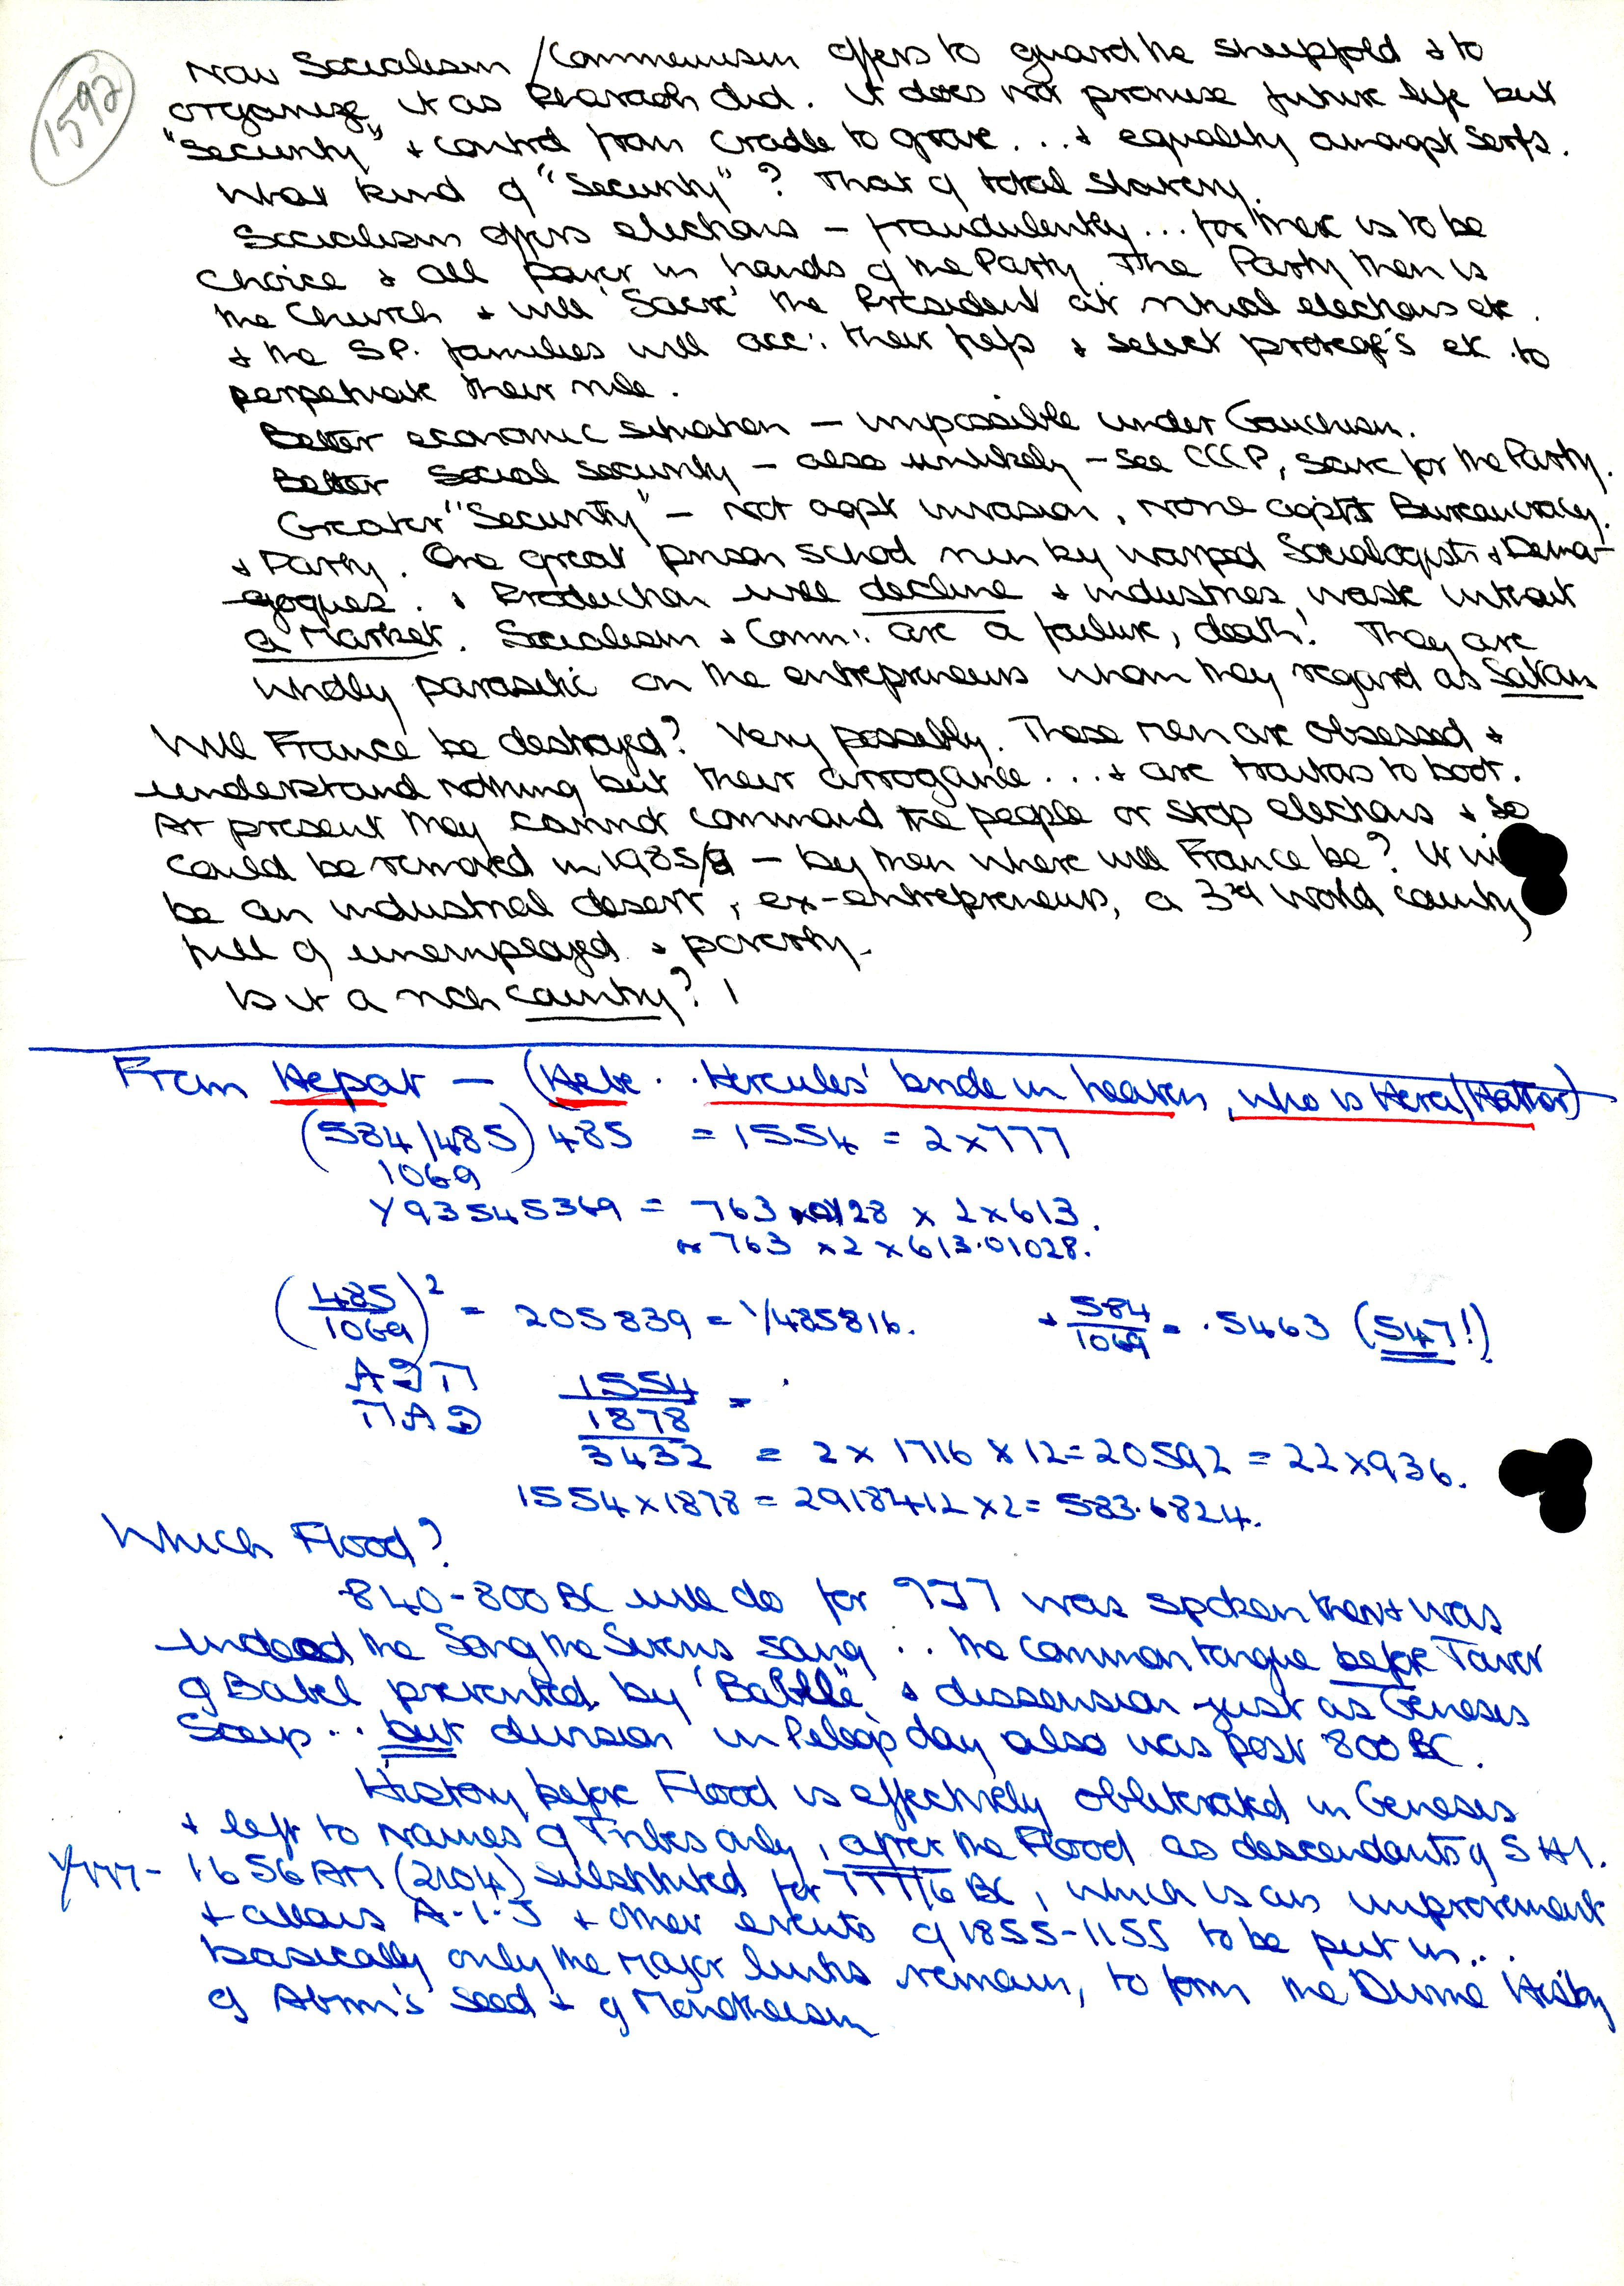 1592
Now Socialism / Communism offers to guard the sheepfold & to
organize it as Pharaoh did. It does not promise future life but
"Security" & control from Cradle to grave... & equality amongst Serfs.
What kind of "Security"? That of total slavery.
Socialism offers elections – fraudulently... for there is to be
choice & all power in hands of the Party. The Party then is
the Church & will 'Sack' the President at ritual elections etc.
& the S.P. families will acc: their help & select protegé's etc. to
perpetuate their rule.
Better economic situation – impossible under Gauchism.
Better Social Security – also unlikely – see CCCP, save for the Party.
Greater "Security" – not agst invasion, none agst Bureaucracy.
& Party. One great prison school run by warped Sociologists & Dema-
gogues. & Production will decline & industries, work without
a Market. Socialism & Comm: are a failure, death! They are
wholly parasitic on the entrepreneurs whom they regard as Satans
Will France be destroyed? Very possibly. These men are obsessed &
understand nothing but their arrogance... & are traitors to boot.
At present they cannot command the people or stop elections & so
could be removed in 1985/ – by then where will France be? It
be an industrial desert, ex-entrepreneurs, a 3rd World country
full of unemployed & poverty.
Is it a rich country? !
From Hepat – (Hebe .. Hercules' bride in heaven, who is Hera/Hathor)
(584/485) 485 = 1554 = 2x777
1069
Y93545369 = 763 x 0128 x 2x613.
or 763 x2 x 613.01028.
(485/1069)² = 205839 = 1/485816. + 584/1069 = .5463 (547!)
1554
1878 =
3432 = 2 x 1716 x 12 = 20592 = 22x936.
1554 x 1878 = 2918412 x 2 = 583.6824.
Which Flood?
840-800 BC will do for was spoken then & was
indeed the Song the Sirens sang .. the common tongue before Tower
of Babel prevented by 'Babble' & dissension just as Genesis
Says .. but division in Peleg's day also was post 800 BC.
History before Flood is effectively obliterated in Genesis
& left to Names of Tribes only, after the Flood as descendants of S H J.
1656 AM (2104) substituted for 777/6 BC, which is an improvement
& allows A-I-J & other events of 1855-1155 to be put in...
basically only the Major links remain, to form the Divine History
of Abrm's Seed & of Monotheism